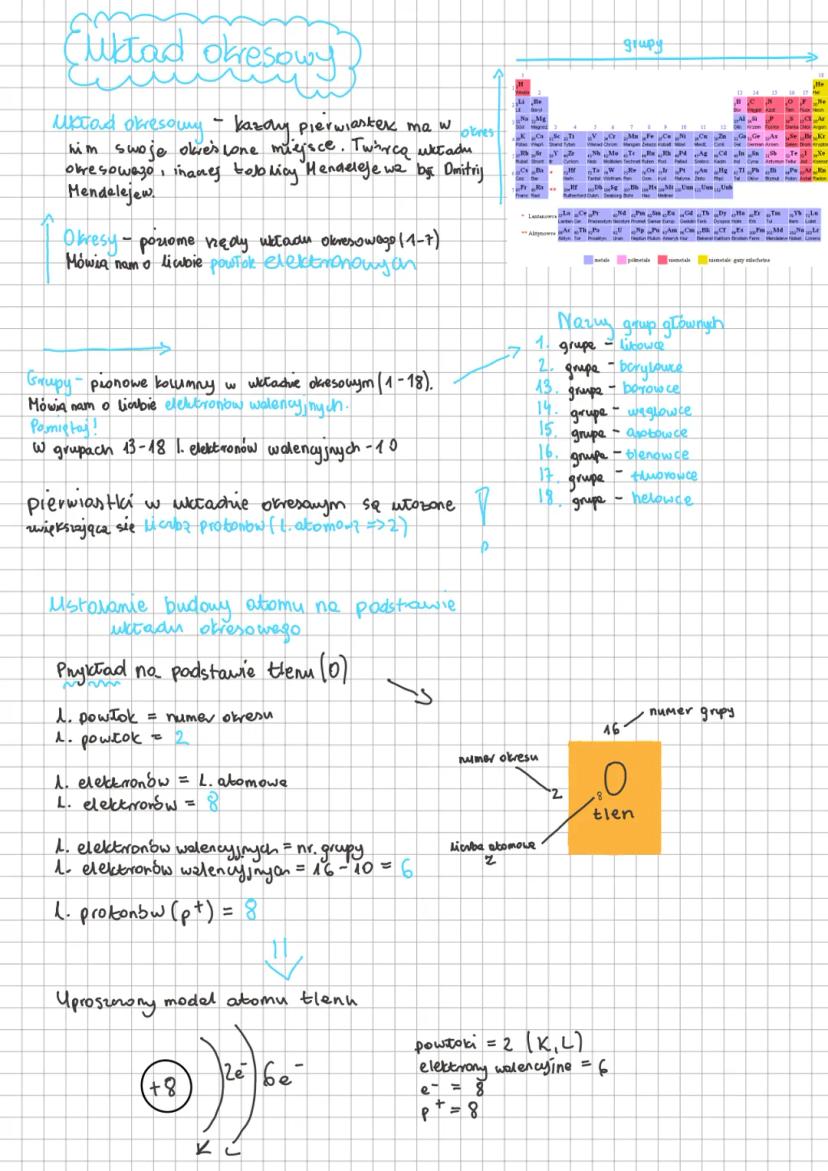 Układ okresowy
Układ okresowy - każdy pierwiastek ma w
nim swoje określone miejsce. Twórcą układu
okresowego, inaczej tablicy Mendelejewa był Dmitrij
Mendelejew.
grupy
okres
metale
półmetale
niemetale
niemetale: gazy szlachetne
* Lantanowce
** Aktynowce
Okresy - poziome rzędy układu okresowego (1-7)
Mówią nam o liczbie powłok elektronowych
Grupy - pionowe kolumny w układzie okresowym (1-18).
Mówią nam o liczbie elektronów walencyjnych.
Pamiętaj!
W grupach 13-18 l. elektronów walencyjnych -10
Nazwy grup głównych
1. grupa - litowce
2. grupa - berylowce
13. grupa - borowce
14. grupa - węglowce
15. grupa - azotowce
16. grupa - tlenowce
17. grupa - fluorowce
18. grupa - helowce
pierwiastki w układzie okresowym są ułożone
zwiększającą się liczbą protonów (l. atomową => Z)
!
Ustalanie budowy atomu na podstawie
układu okresowego
Przykład na podstawie tlenu (O)
l. powłok = numer okresu
l. powłok = 2
l. elektronów = l. atomowa
l. elektronów = 8
l. elektronów walencyjnych = nr. grupy
l. elektronów walencyjnych = 16 - 10 = 6
l. protonów (p+) = 8
numer grupy
16
numer okresu
2
O
8
tlen
liczba atomowa
Z
Uproszczony model atomu tlenu
+8
2e-
6e-
K L
powłoki = 2 (K, L)
elektrony walencyjne = 6
e- = 8
p+ = 8